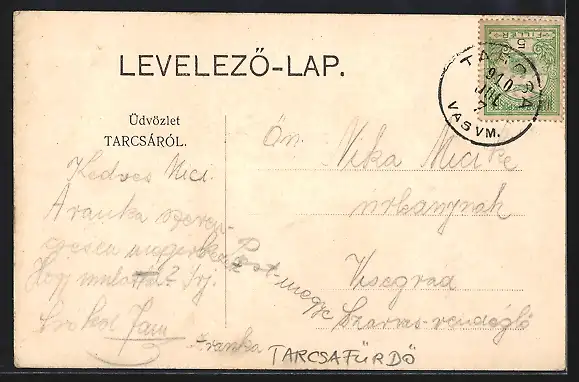 LEVELEZŐ-LAP.
Üdvözlet
TARCSÁRÓL.
TARCSA
910 JUL 7
VASVM.
5
FILLÉR
Kedves Mici.
Aranka szeren-
csésen megérkezett
Hogy mulatta? Írj.
Csókol Jani
Aranka
Ön. Vika Micike
úrleánynak
Visegrád
Pest-megye Szarvas-vendéglő
TARCSAFÜRDŐ